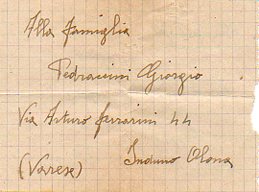 Alla famiglia
Pedraccini Giorgio
Via Arturo Ferrarini 44
Induno Olona
(Varese)